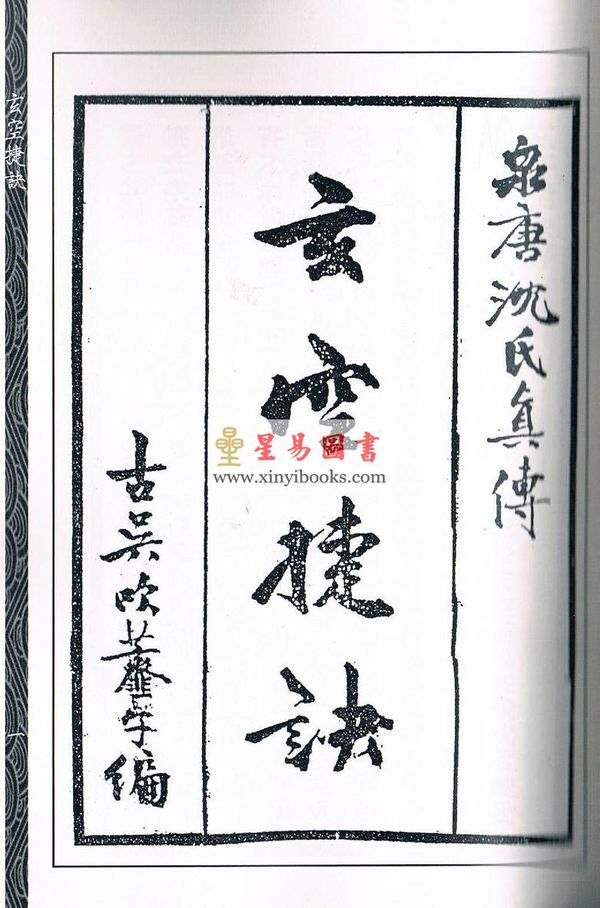 泉唐沈氏真傳
玄空捷訣
古吳吹虀子編
星易圖書
www.xinyibooks.com
玄空捷訣
一